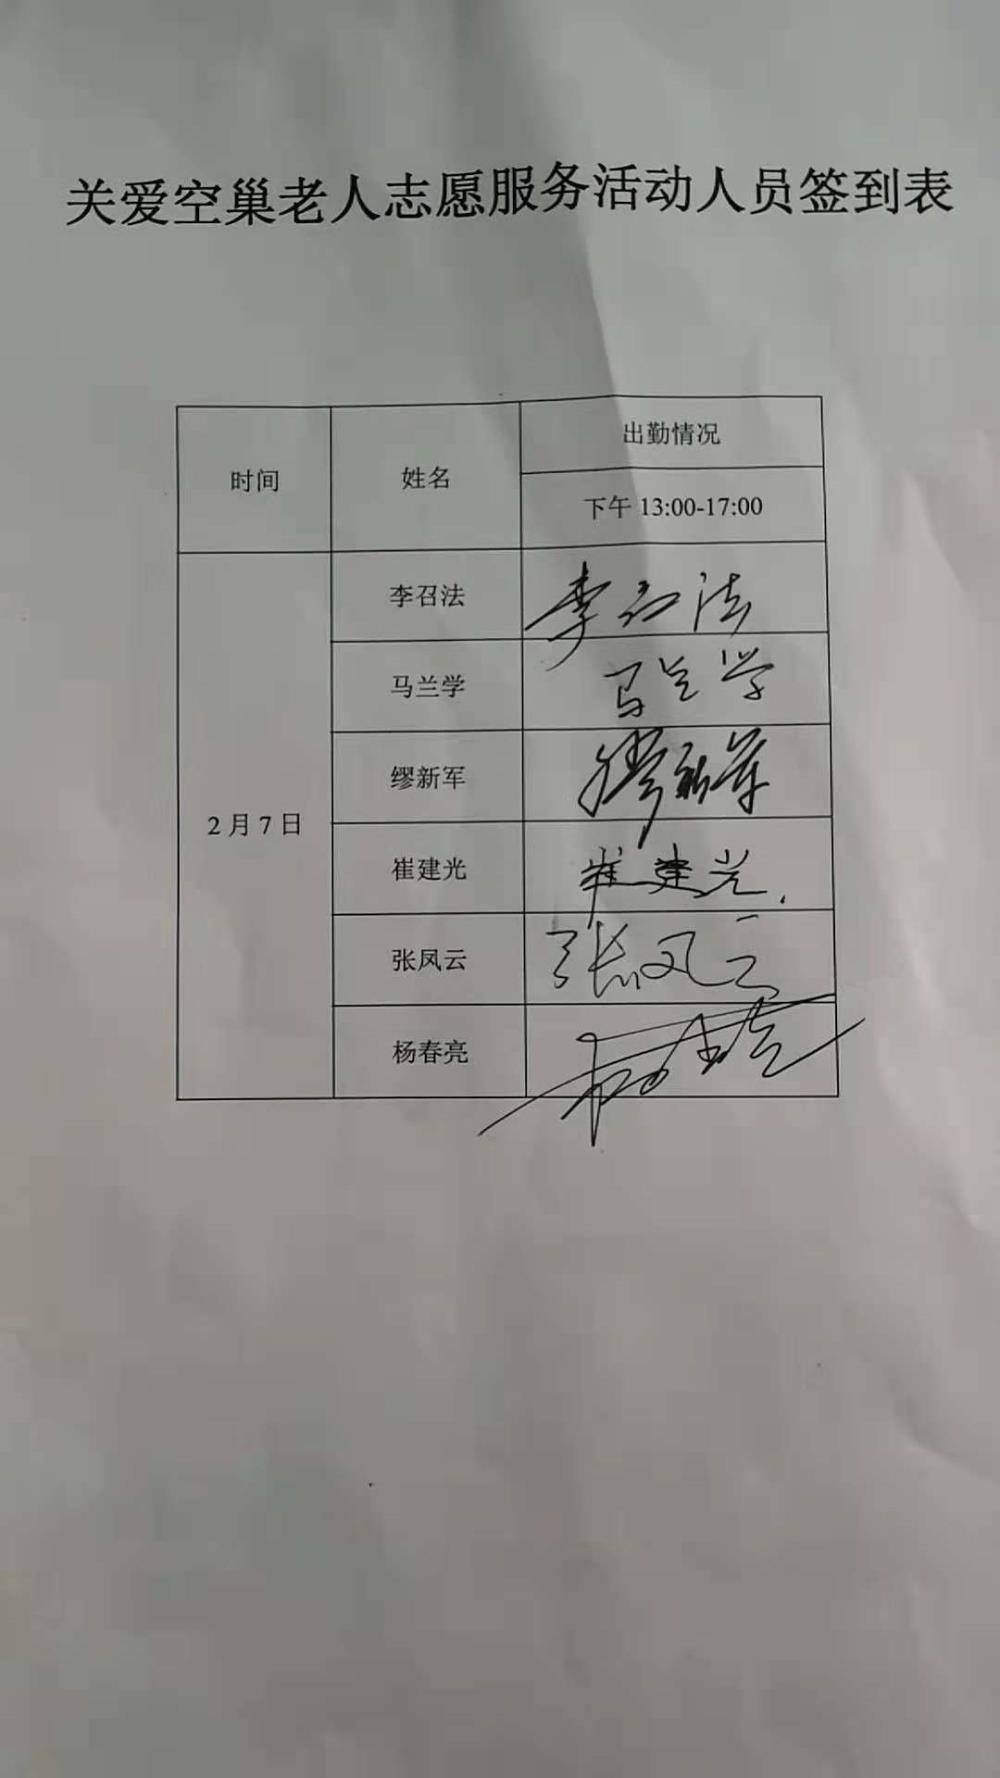 关爱空巢老人志愿服务活动人员签到表
时间 姓名 出勤情况
下午 13:00-17:00
2月7日
李召法 李召法
马兰学 马兰学
缪新军 缪新军
崔建光 崔建光
张凤云 张凤云
杨春亮